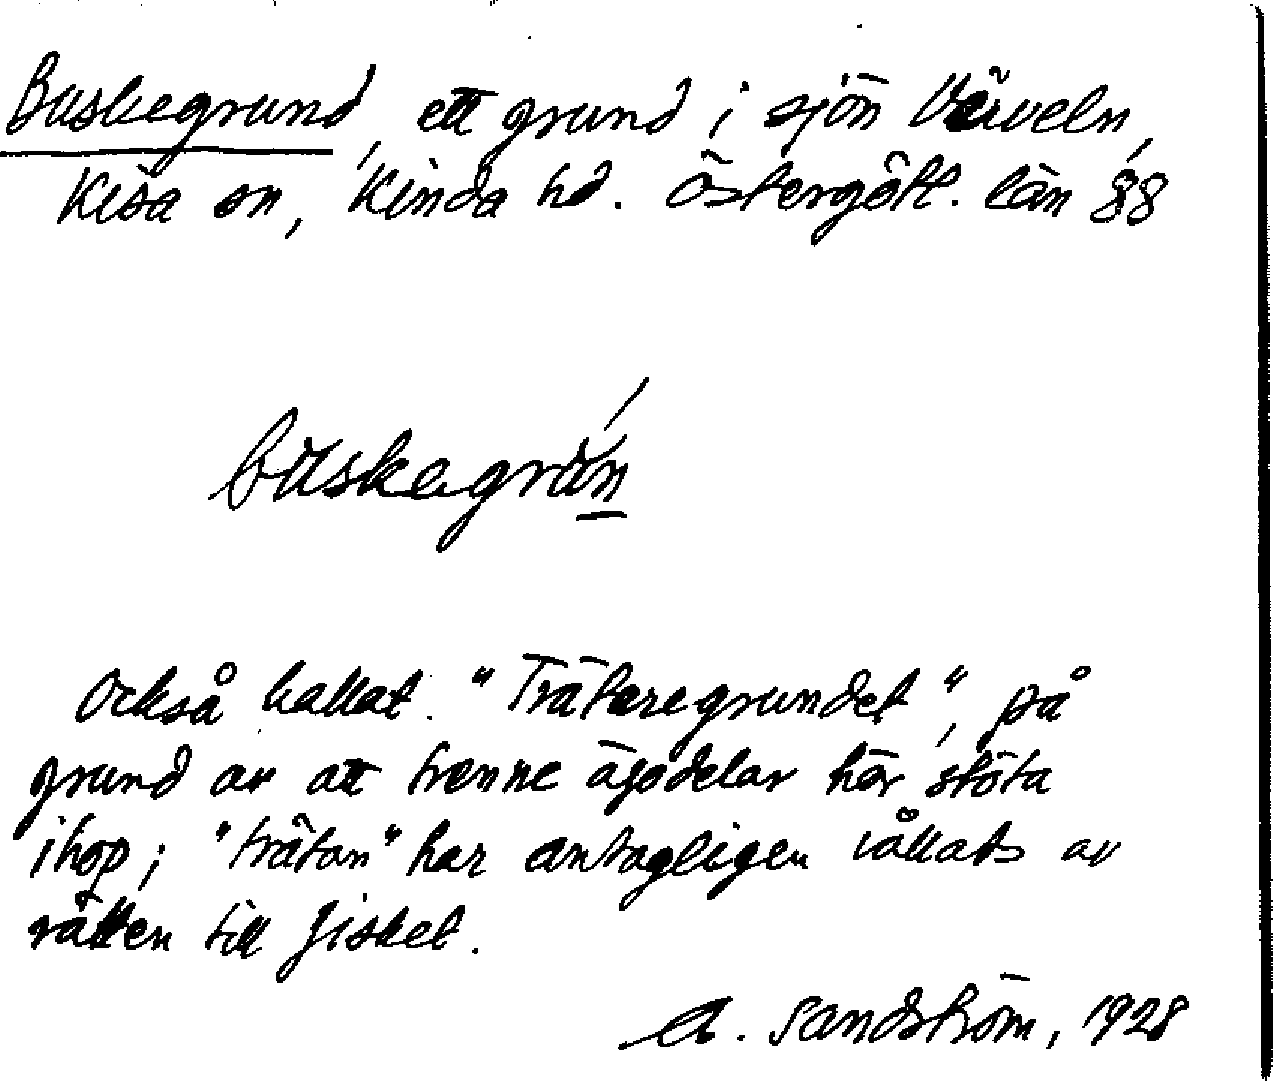 Buskegrund, ett grund i sjön Verveln,
Kisa sn, Kinda hd. Östergötl. län 88
buskagrún
Också kallat "Träteregrundet", på
grund av att trenne ägodelar här stöta
ihop; "trätan" har antagligen vållats av
rätten till fisket.
A. Sandström, 1928